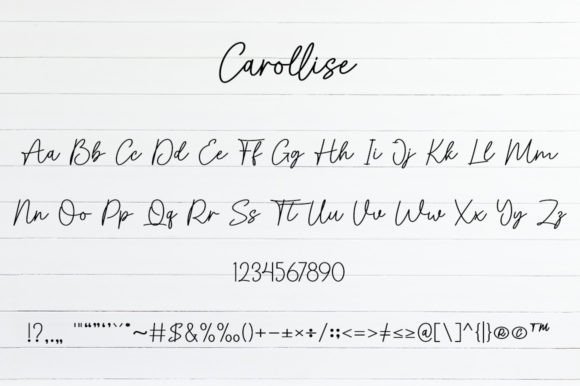 Carollise
Aa Bb Cc Dd Ee Ff Gg Hh Ii Jj Kk Ll Mm
Nn Oo Pp Qq Rr Ss Tt Uu Vv Ww Xx Yy Zz
1234567890
!?,.„ '"“”‘’`´•~#$&%‰()+−±×÷/:;<=>≠≤≥@[\]^{|}®©™